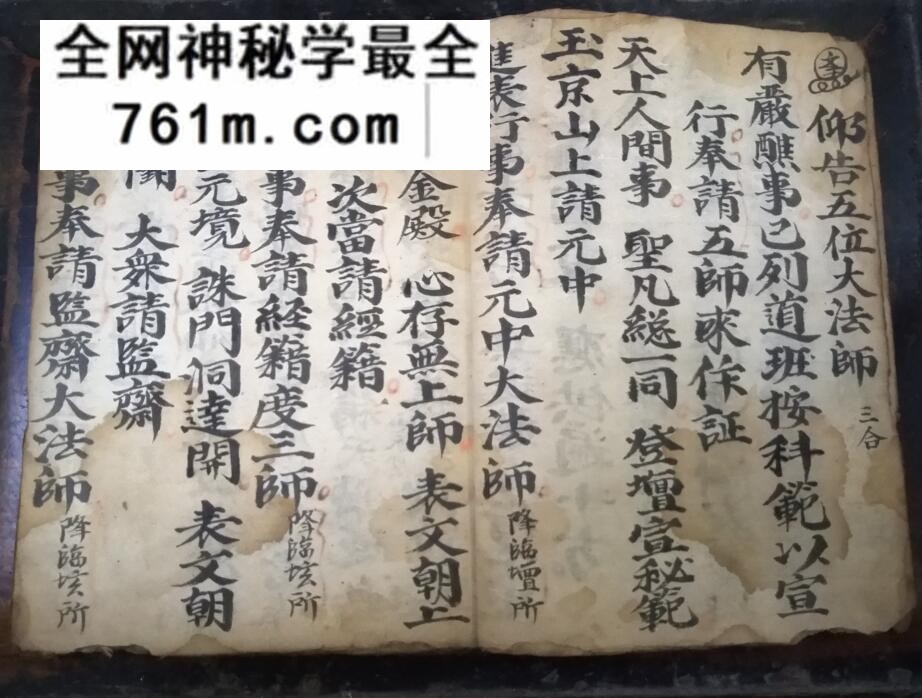 全网神秘学最全
761m.com
仰告五位大法師 三合
有嚴醮事已列道班按科範以宣
行奉請五師求作証
天上人間事 聖凡総一同 登壇宣秘範
玉京山上請元中
進表行事奉請元中大法師 降臨壇所
金殿 心存無上師 表文朝上
次當請經籍
事奉請経籍度三師 降臨垓所
元境 誅門洞達開 表文朝
大衆請監齋
事奉請監齋大法師 降臨垓所